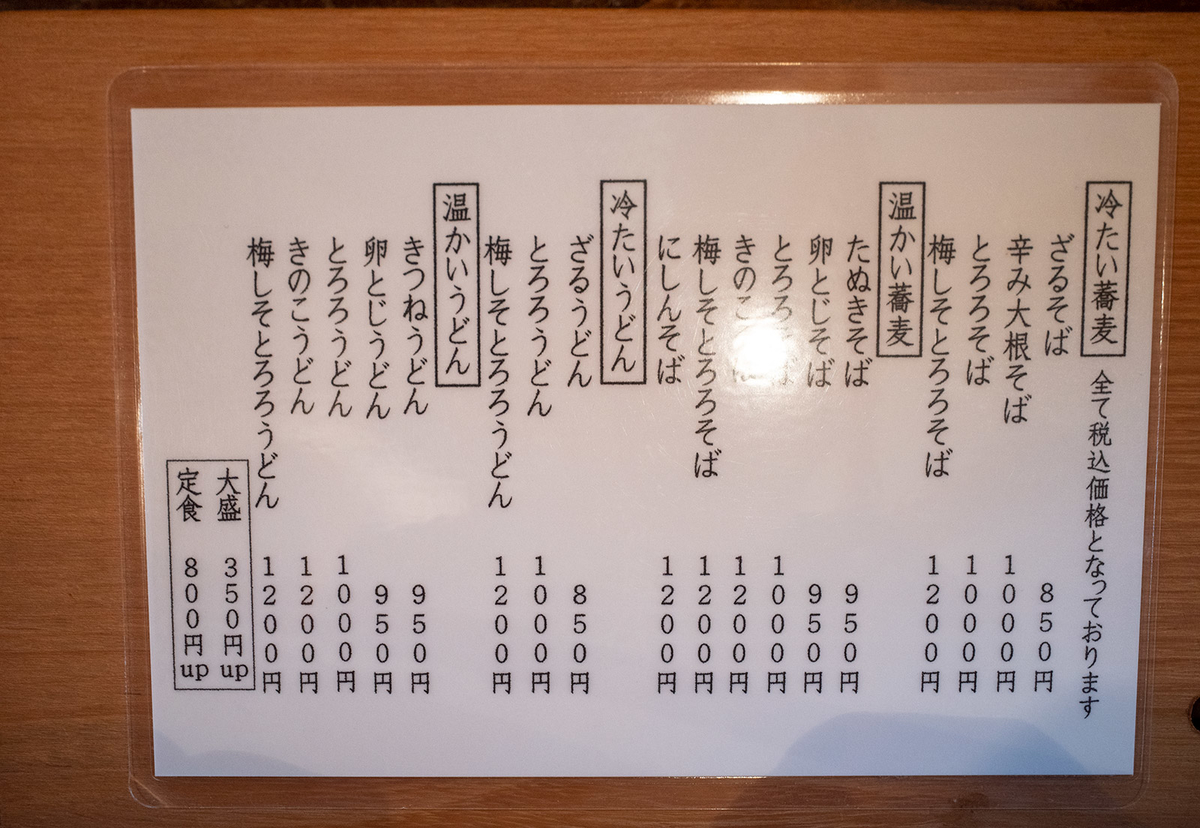 冷たい蕎麦 全て税込価格となっております
ざるそば 850円
辛み大根そば 1000円
とろろそば 1000円
梅しそとろろそば 1200円
温かい蕎麦
たぬきそば 950円
卵とじそば 950円
とろろそば 1000円
きのこそば 1200円
梅しそとろろそば 1200円
にしんそば 1200円
冷たいうどん
ざるうどん 850円
とろろうどん 1000円
梅しそとろろうどん 1200円
温かいうどん
きつねうどん 950円
卵とじうどん 950円
とろろうどん 1000円
きのこうどん 1200円
梅しそとろろうどん 1200円
大盛 350円up
定食 800円up